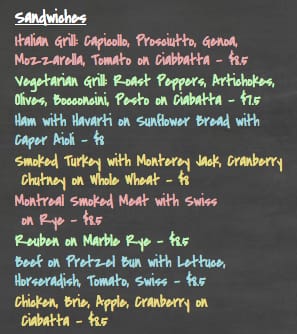 Sandwiches
Italian Grill: Capicollo, Prosciutto, Genoa,
Mozzarella, Tomato on Ciabbatta - $8.5
Vegetarian Grill: Roast Peppers, Artichokes,
Olives, Bocconcini, Pesto on Ciabatta - $7.5
Ham with Havarti on Sunflower Bread with
Caper Aioli - $8
Smoked Turkey with Monterey Jack, Cranberry
Chutney on Whole Wheat - $8
Montreal Smoked Meat with Swiss
on Rye - $8.5
Reuben on Marble Rye - $8.5
Beef on Pretzel Bun with Lettuce,
Horseradish, Tomato, Swiss - $8.5
Chicken, Brie, Apple, Cranberry on
Ciabatta - $8.5